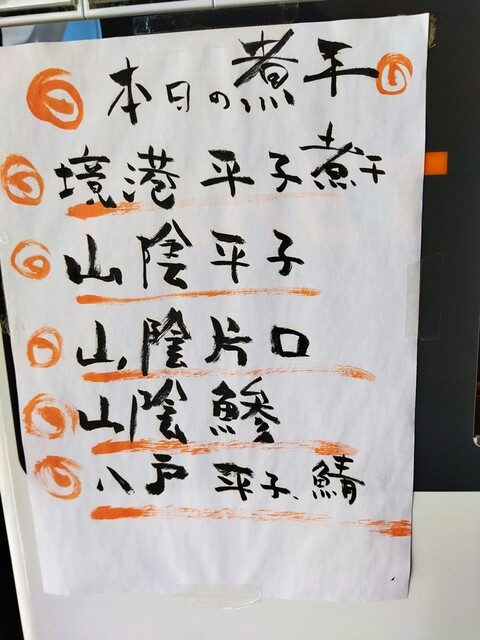 本日の煮干
境港 平子煮干
山陰 平子
山陰 片口
山陰 鯵
八戸 平子、鯖